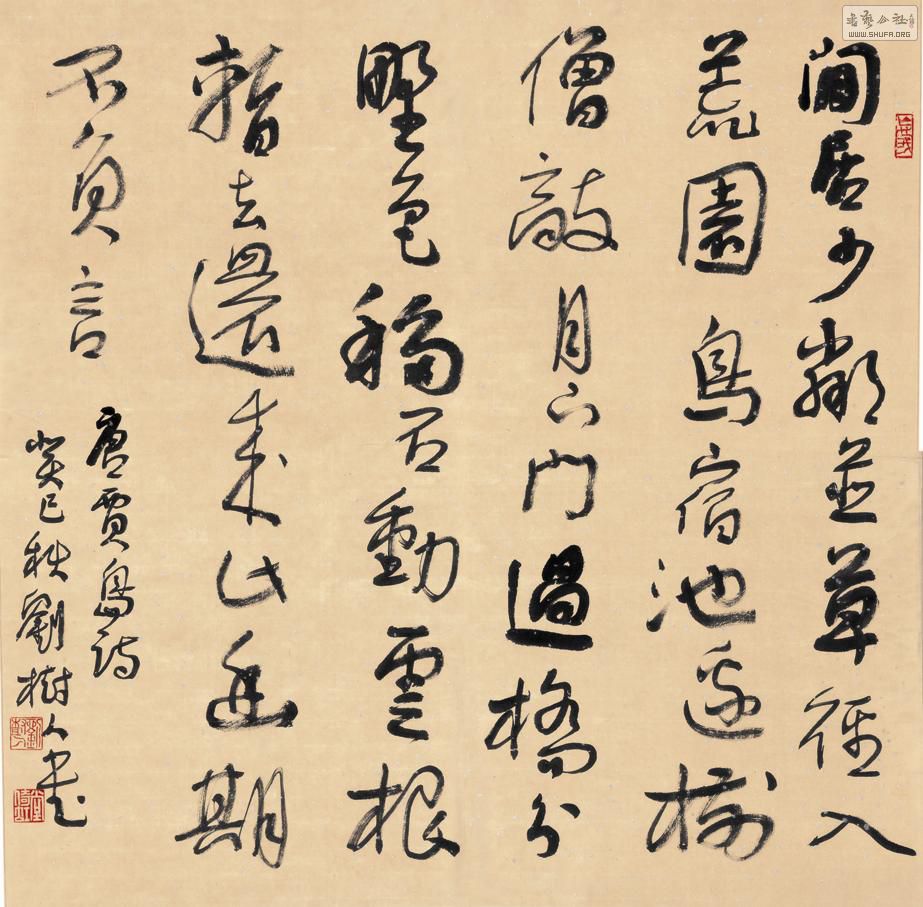 閒居少鄰並草徑入
荒園鳥宿池邊樹
僧敲月下門過橋分
野色移石動雲根
暫去還來此幽期
不負言
唐賈島詩
癸巳秋劉樹人書
書藝公社
WWW.SHUFA.ORG